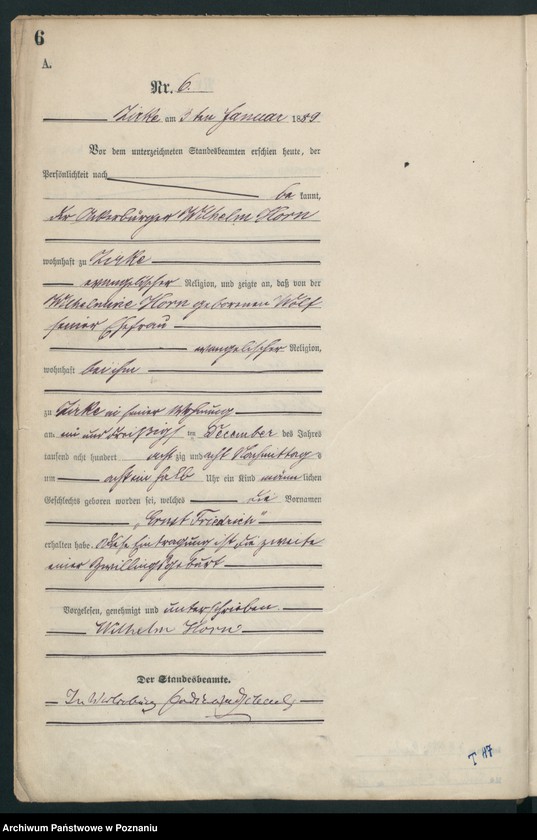 6
A.
Nr. 6.
Zirke am 3ten Januar 1889
Vor dem unterzeichneten Standesbeamten erschien heute, der
Persönlichkeit nach
be kannt,
der Ackerbürger Wilhelm Horn
wohnhaft zu Zirke
evangelischer Religion, und zeigte an, daß von der
Wilhelmine Horn geborenen Wolf
seiner Ehefrau
evangelischer Religion,
wohnhaft bei ihm
zu Zirke in seiner Wohnung
am ein und dreißigsten December des Jahres
tausend acht hundert acht zig und acht Nachmittags
um acht ein halb Uhr ein Kind männlichen
Geschlechts geboren worden sei, welches die Vornamen
„Ernst Friedrich“
erhalten habe. Diese Eintragung ist die zweite
einer Zwillingsgeburt
Vorgelesen, genehmigt und unterschrieben
Wilhelm Horn
Der Standesbeamte.
In Vertretung
T 117
Archiwum Państwowe w Poznaniu